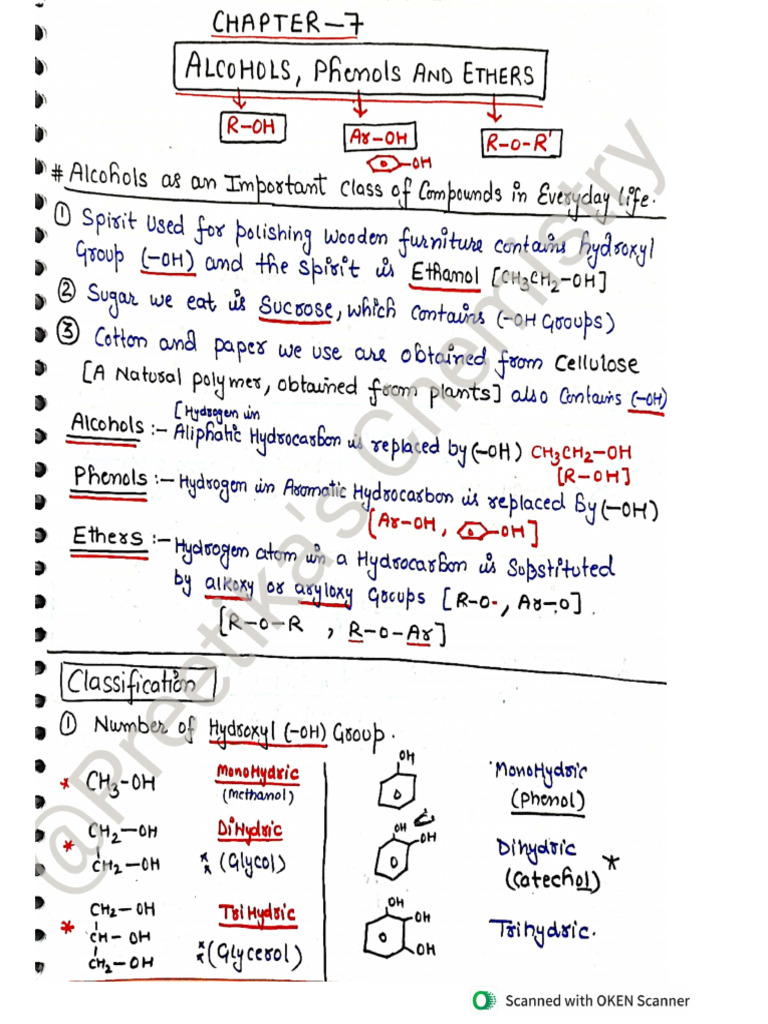 CHAPTER-7
ALCOHOLS, PhenolS AND ETHERS
R-OH
Ar-OH
R-O-R'
-OH
# Alcohols as an Important Class of Compounds in Everyday Life.
① Spirit Used for polishing wooden furniture contains hydroxyl
Group (-OH) and the Spirit is Ethanol [CH3CH2-OH]
② Sugar we eat is Sucrose, which contains (-OH Groups)
③ Cotton and paper we use are obtained from Cellulose
[A Natural polymer, obtained from plants] also Contains (-OH)
[Hydrogen in
Alcohols :- Aliphatic Hydrocarbon is replaced by (-OH) CH3CH2-OH
[R-OH]
Phenols :- Hydrogen in Aromatic Hydrocarbon is replaced By (-OH)
[Ar-OH, -OH]
Ethers :- Hydrogen atom in a Hydrocarbon is Substituted
by alkoxy or aryloxy Groups [R-O-, Ar-O].
[R-O-R , R-O-Ar]
Classification
① Number of Hydroxyl (-OH) Group.
* CH3-OH MonoHydric OH MonoHydric
(methanol) (phenol)
* CH2-OH DiHydric OH OH Dihydric
CH2-OH ** (Glycol) (Catechol) *
CH2-OH TriHydric OH
* CH-OH OH Trihydric.
CH2-OH ** (Glycerol) OH
@Preetika's Chemistry
Scanned with OKEN Scanner